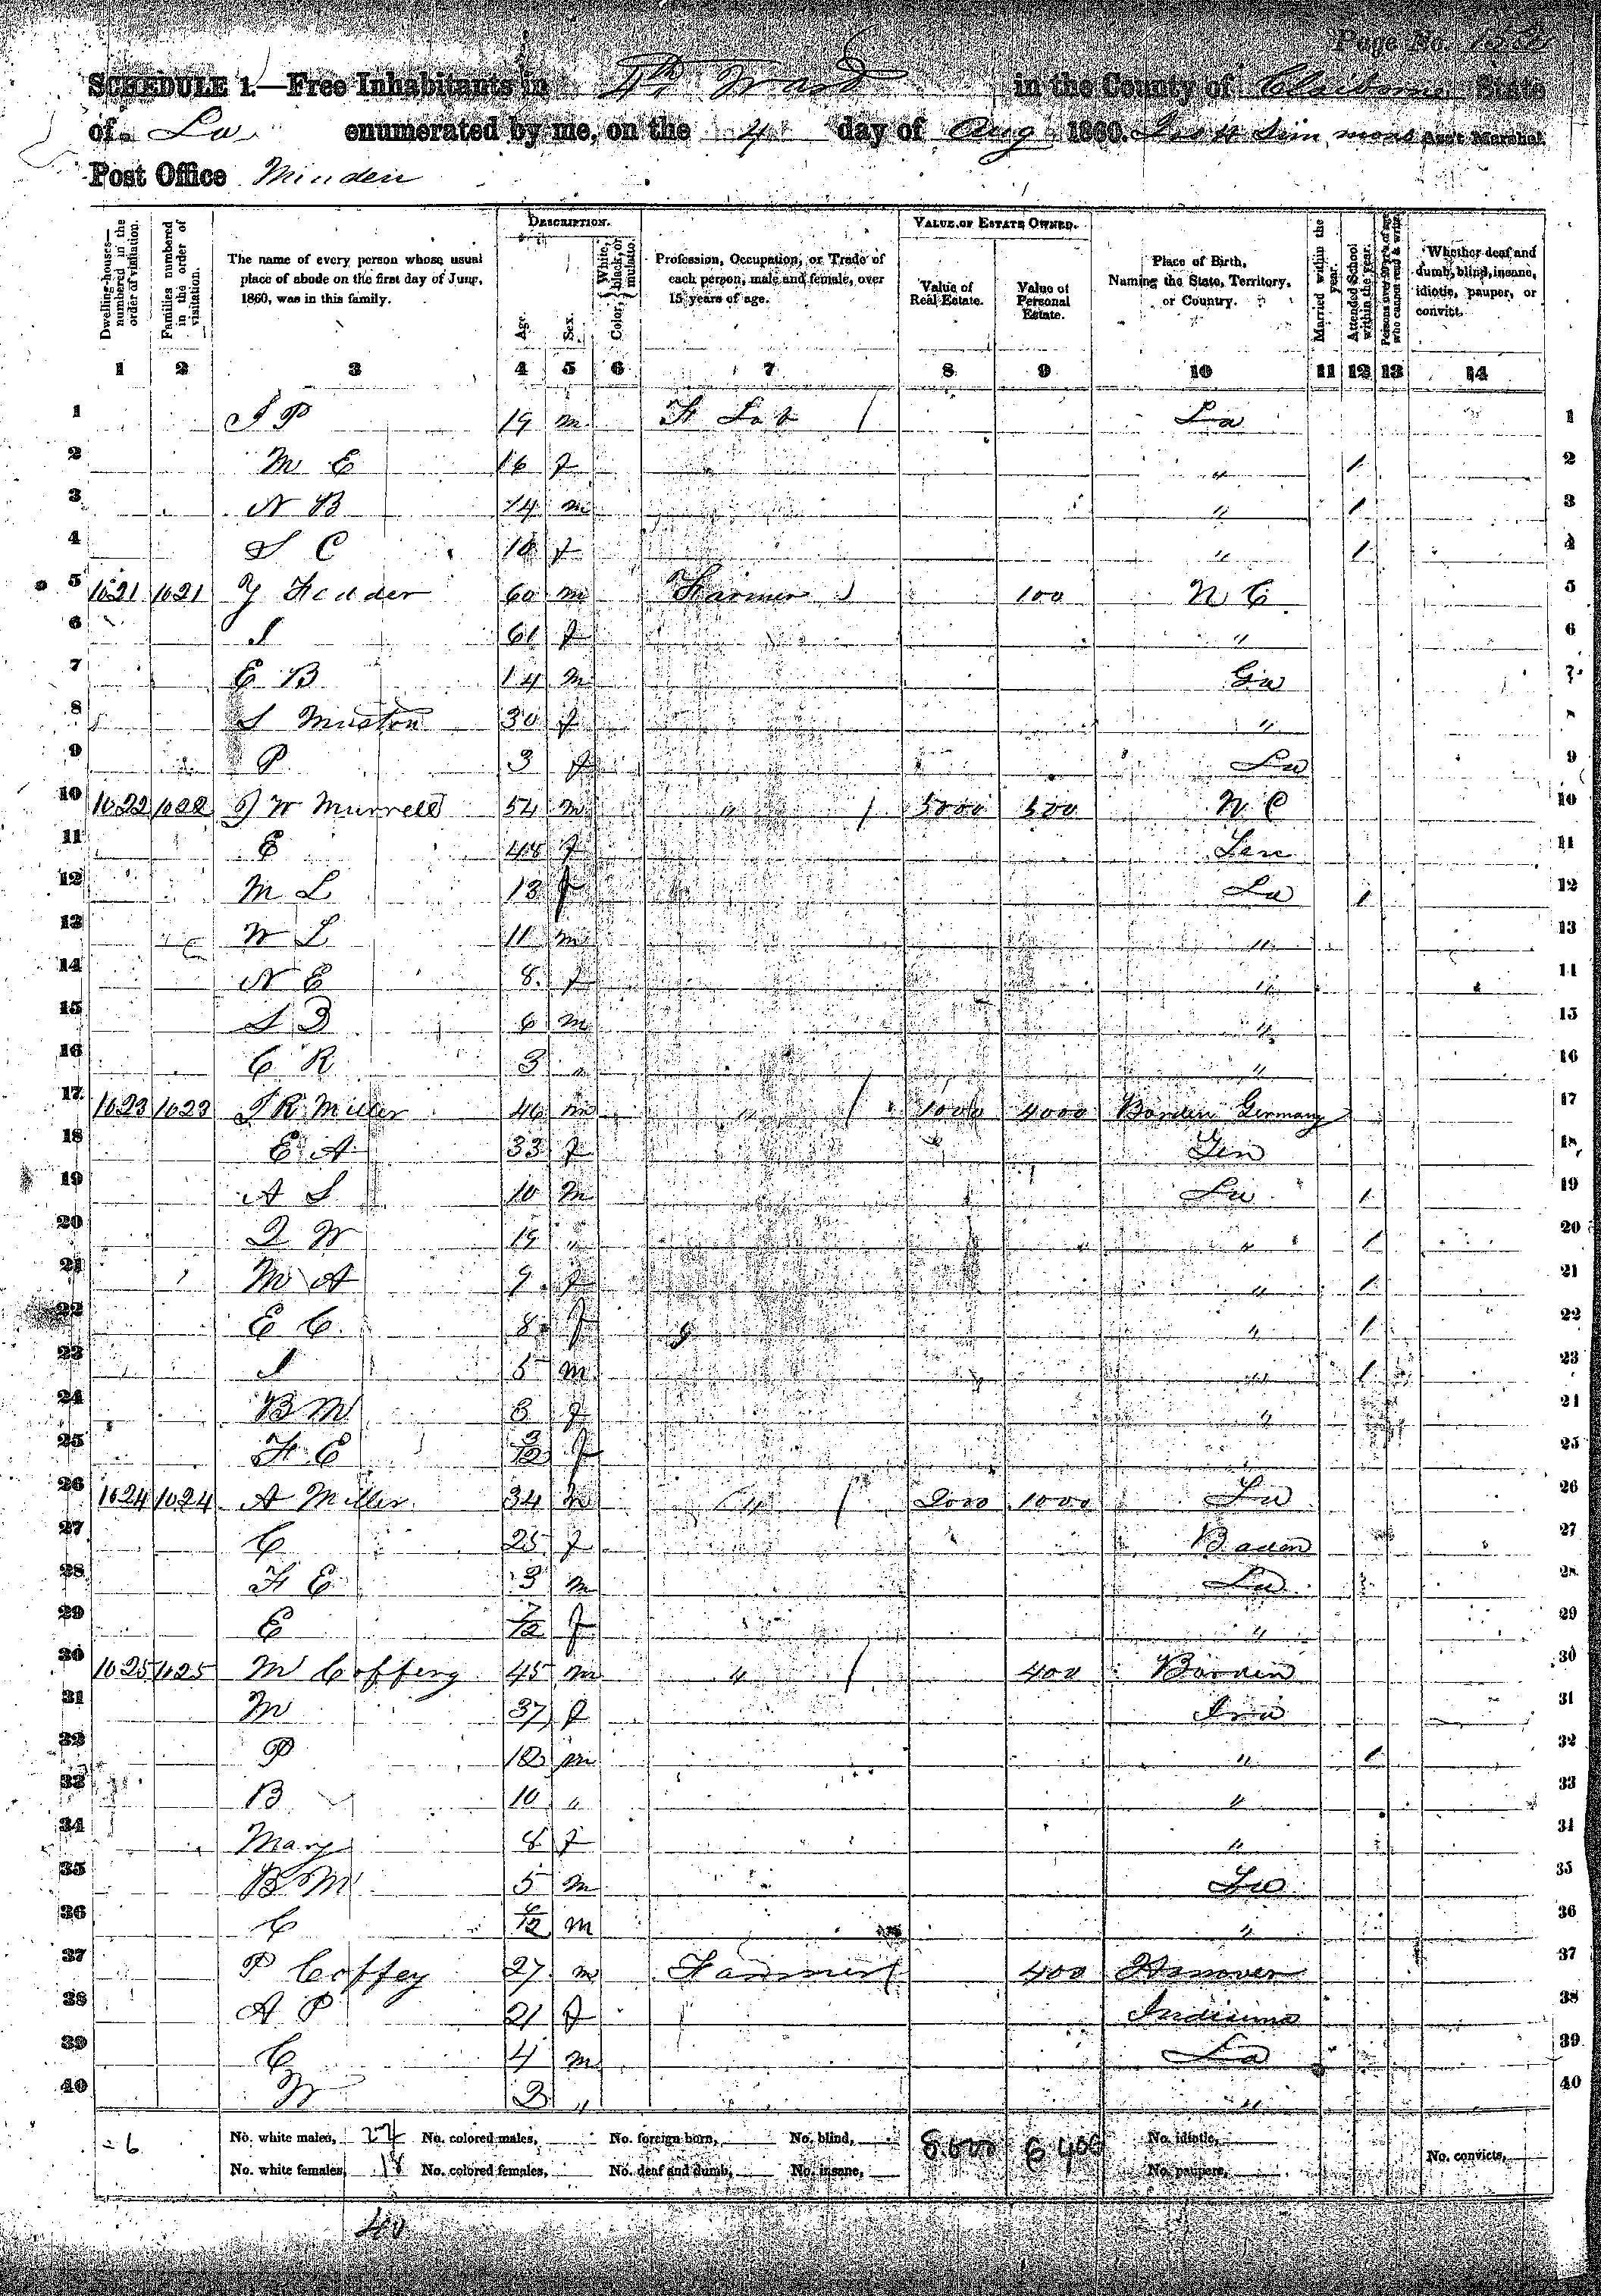 Page No. 152
SCHEDULE 1.—Free Inhabitants in 4th Ward in the County of Claiborne State
of La enumerated by me, on the 4 day of Aug 1860. Simmons Ass't Marshal.
Post Office Minden
Dwelling-houses—numbered in the order of visitation.
Families numbered in the order of visitation.
The name of every person whose usual place of abode on the first day of June, 1860, was in this family.
DESCRIPTION.
Age.
Sex.
Color, White, black, or mulatto.
Profession, Occupation, or Trade of each person, male and female, over 15 years of age.
VALUE OF ESTATE OWNED.
Value of Real Estate.
Value of Personal Estate.
Place of Birth, Naming the State, Territory, or Country.
Married within the year.
Attended School within the year.
Persons over 20 y'rs of age who cannot read & write.
Whether deaf and dumb, blind, insane, idiotic, pauper, or convict.
1 2 3 4 5 6 7 8 9 10 11 12 13 14
1 J P 19 m F Lab / La 1
2 M E 16 f " / 2
3 N B 14 m " / 3
4 S C 10 f " / 4
5 1021 1021 Y 60 m Farmer 100 N C 5
6 S 61 f " 6
7 E B 14 m Ga 7
8 S Muston 30 f " 8
9 P 3 f La 9
10 1022 1022 J W Murrell 54 m " / 5000 500 N C 10
11 E 48 f Ten 11
12 M L 13 f La / 12
13 W L 11 m " 13
14 N E 8 f " 14
15 S B 6 m " 15
16 C R 3 " " 16
17 1023 1023 J R Miller 46 m " / 1000 4000 Barden Germany 17
18 E A 33 f Ten 18
19 A S 10 m La / 19
20 W 19 " " / 20
21 M A 9 f " / 21
22 E C 8 f " / 22
23 S 5 m " / 23
24 B M 3 f " 24
25 F C 3/12 f " 25
26 1024 1024 A Miller 34 m " / 2000 1000 La 26
27 C 25 f Baden 27
28 F E 3 m La 28
29 E 7/12 f " 29
30 1025 1025 M Coffeny 45 m " / 400 Barden 30
31 M 37 f 31
32 P 12 m " / 32
33 B 10 " " 33
34 Mary 8 f " 34
35 B M 5 m La 35
36 C 6/12 m " 36
37 P Coffey 27 m Farmer 400 Hanover 37
38 A P 21 f Indiana 38
39 C 4 m La 39
40 W 2 " " 40
6 No. white males, 22 No. colored males, No. foreign born, No. blind, 8.000 6400 No. idiotic,
No. white females, 18 No. colored females, No. deaf and dumb, No. insane, No. paupers, No. convicts,
40